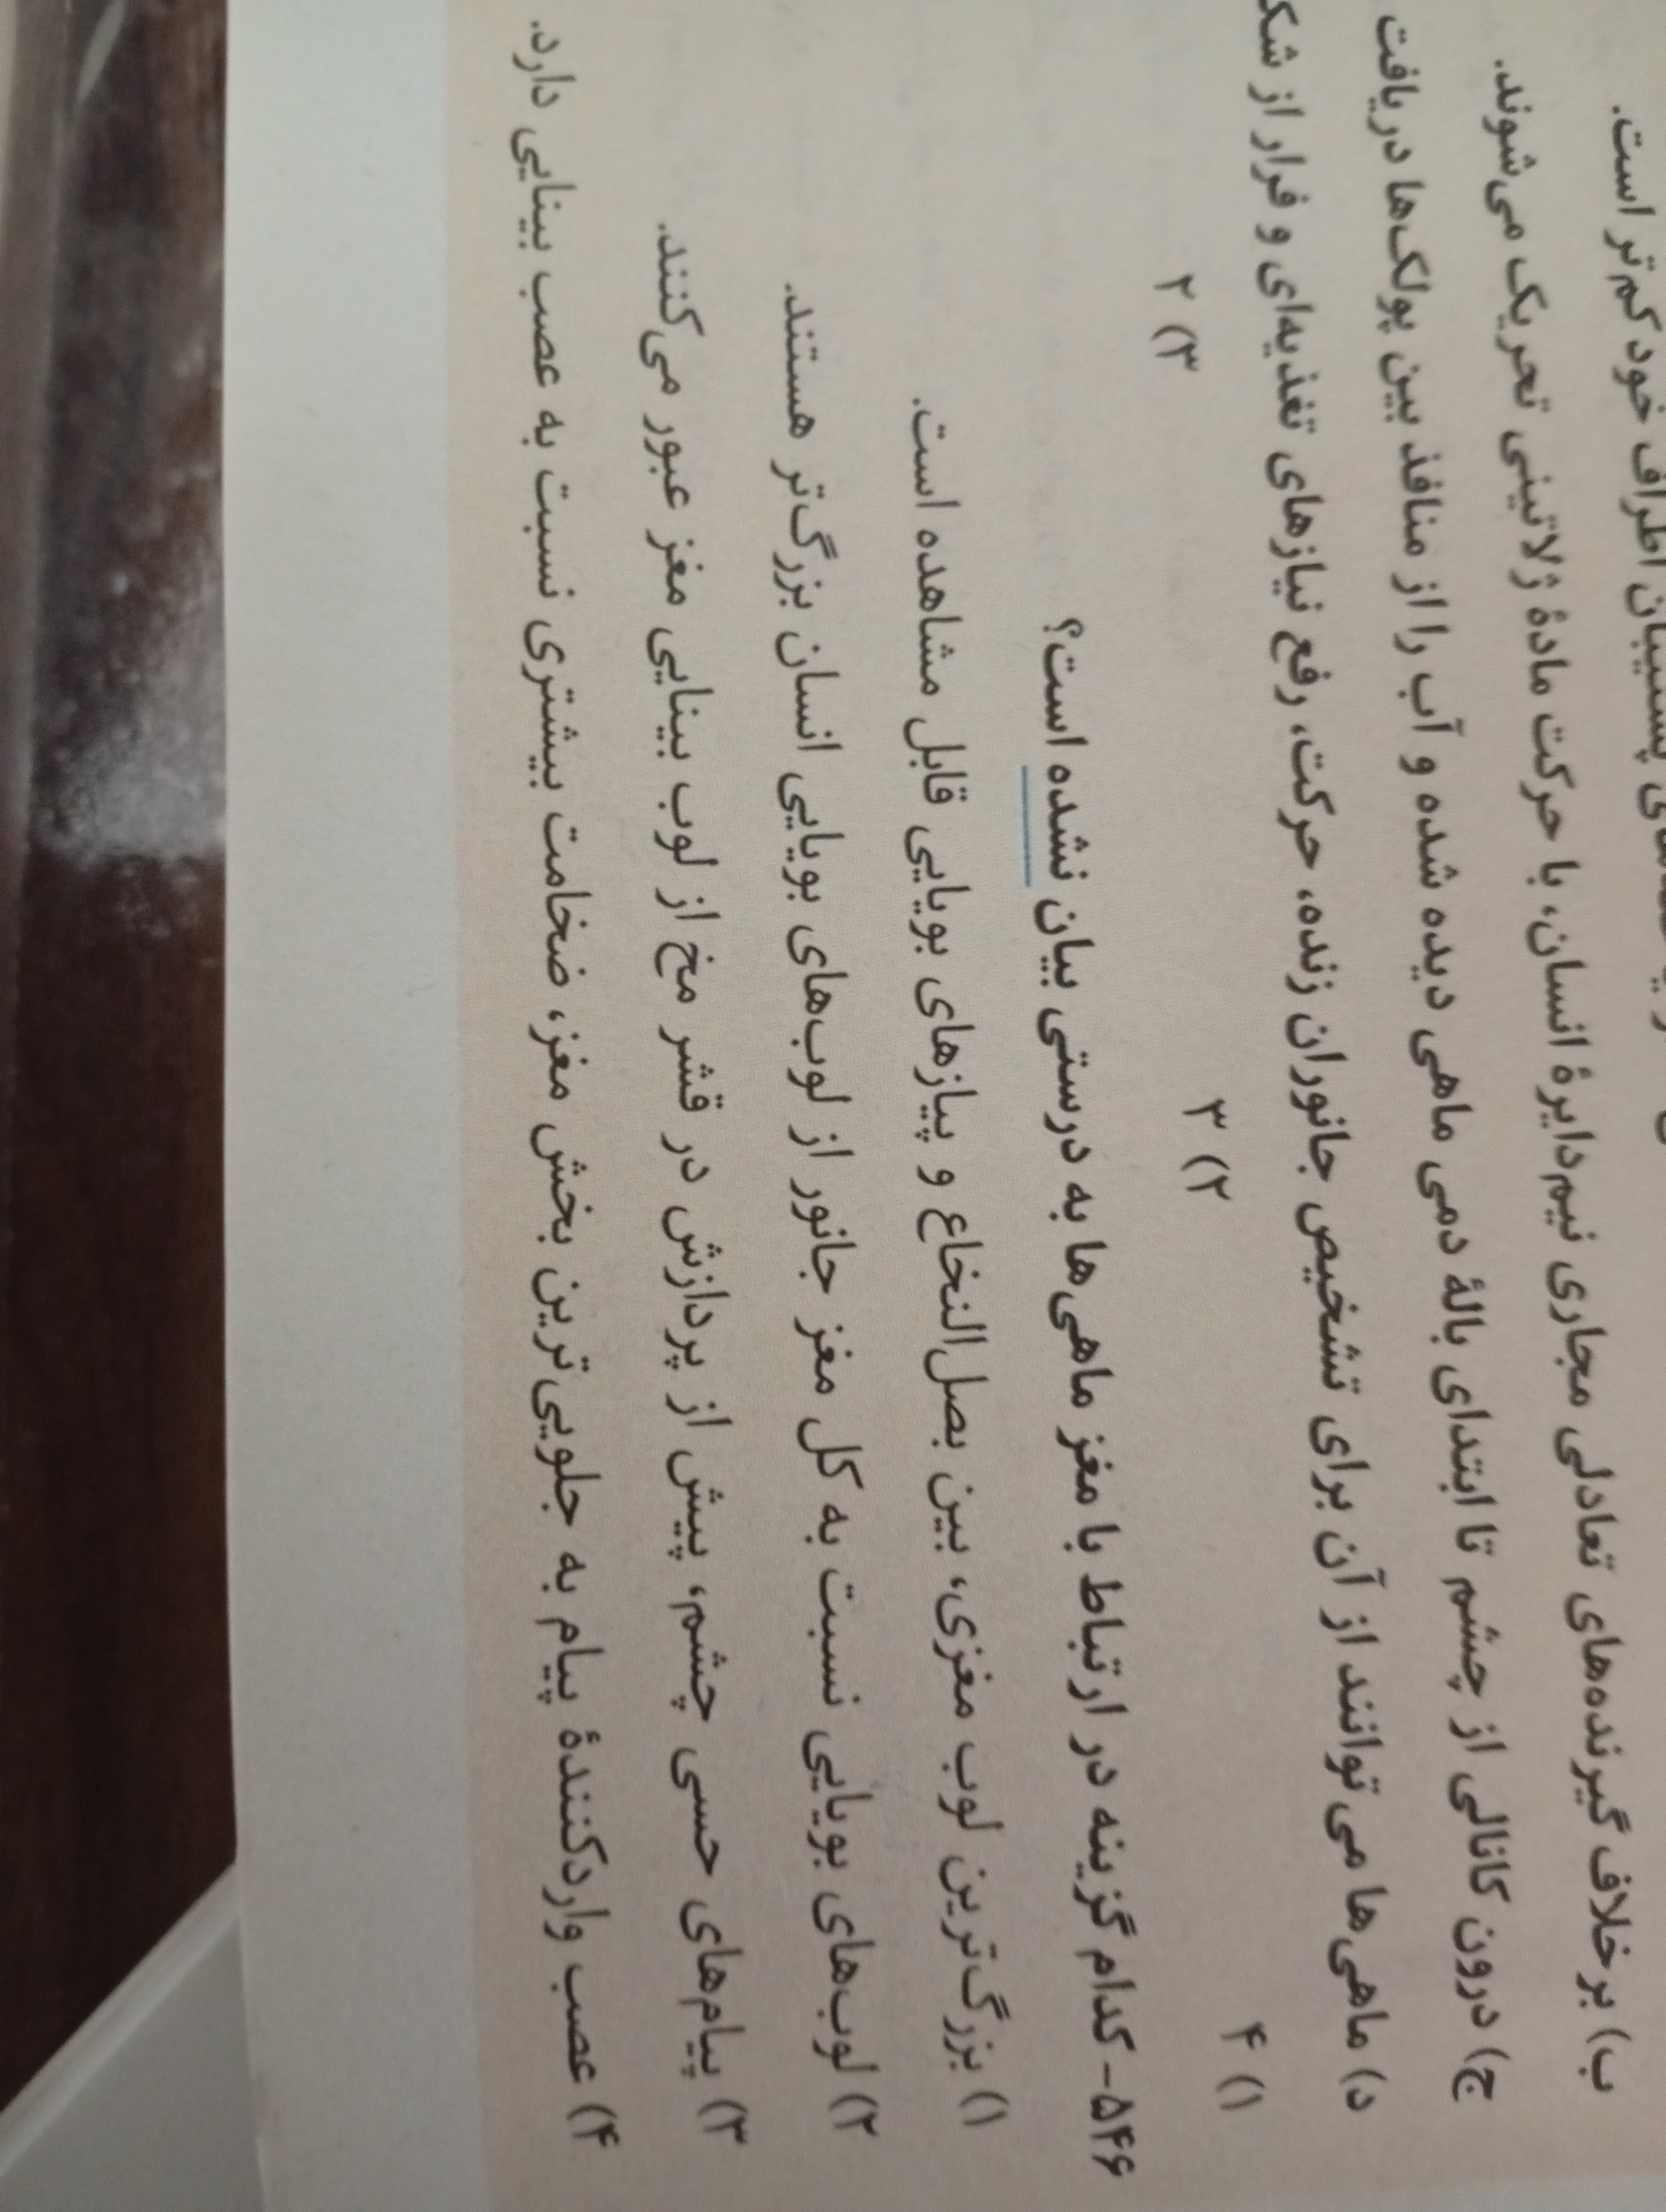 است.
اطراف خود کم‌تر
ب) برخلاف گیرنده‌های تعادلی مجاری نیم‌دایرهٔ انسان، با حرکت مادهٔ ژلاتینی تحریک می‌شوند.
ج) درون کانالی از چشم تا ابتدای بالهٔ دمی ماهی دیده شده و آب را از منافذ بین پولک‌ها دریافت
د) ماهی‌ها می‌توانند از آن برای تشخیص جانوران زنده، حرکت، رفع نیازهای تغذیه‌ای و فرار از
۱) ۴
۲) ۳
۳) ۲
۵۴۶- کدام گزینه در ارتباط با مغز ماهی‌ها به درستی بیان نشده است؟
۱) بزرگ‌ترین لوب مغزی، بین بصل‌النخاع و پیازهای بویایی قابل مشاهده است.
۲) لوب‌های بویایی نسبت به کل مغز جانور از لوب‌های بویایی انسان بزرگ‌تر هستند.
۳) پیام‌های حسی چشم، پیش از پردازش در قشر مخ از لوب بینایی مغز عبور می‌کنند.
۴) عصب واردکنندهٔ پیام به جلویی‌ترین بخش مغز، ضخامت بیشتری نسبت به عصب بینایی دارد.